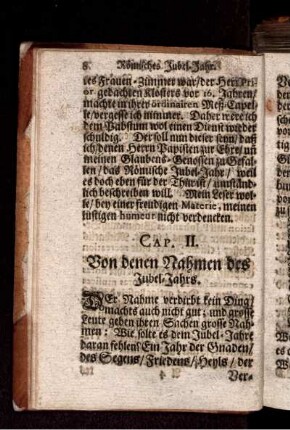 8. Römisches Jubel-Jahr.
tes Frauen-Zimmer war/der Herr Pri-
or gedachten Klosters vor 16. Jahren/
machte in ihrer ordinairen Meß-Capel-
le/vergesse ich nimmer. Daher wäre ich
dem Pabsttum wol einen Dienst wieder
schuldig. Der soll nun dieser seyn/ daß
ich/denen Herrn Papisten zur Ehre/ un
meinen Glaubens-Genossen zu Gefal-
len/ das Römische Jubel-Jahr/ weil
es doch eben für der Thür ist/ umständ-
lich beschreiben will. Mein Leser wol-
le/ bey einer freudigen Materie, meinen
lustigen humeur nicht verdencken.
CAP. II.
Von denen Nahmen des
Jubel-Jahrs.
DEr Nahme verderbt kein Ding/
machts auch nicht gut; und grosse
Leute geben ihren Sachen grosse Nah-
men: Wie solte es dem Jubel-Jahre
daran fehlen? Ein Jahr der Gnaden/
des Segens/ Friedens/ Heyls/ der
Ver-